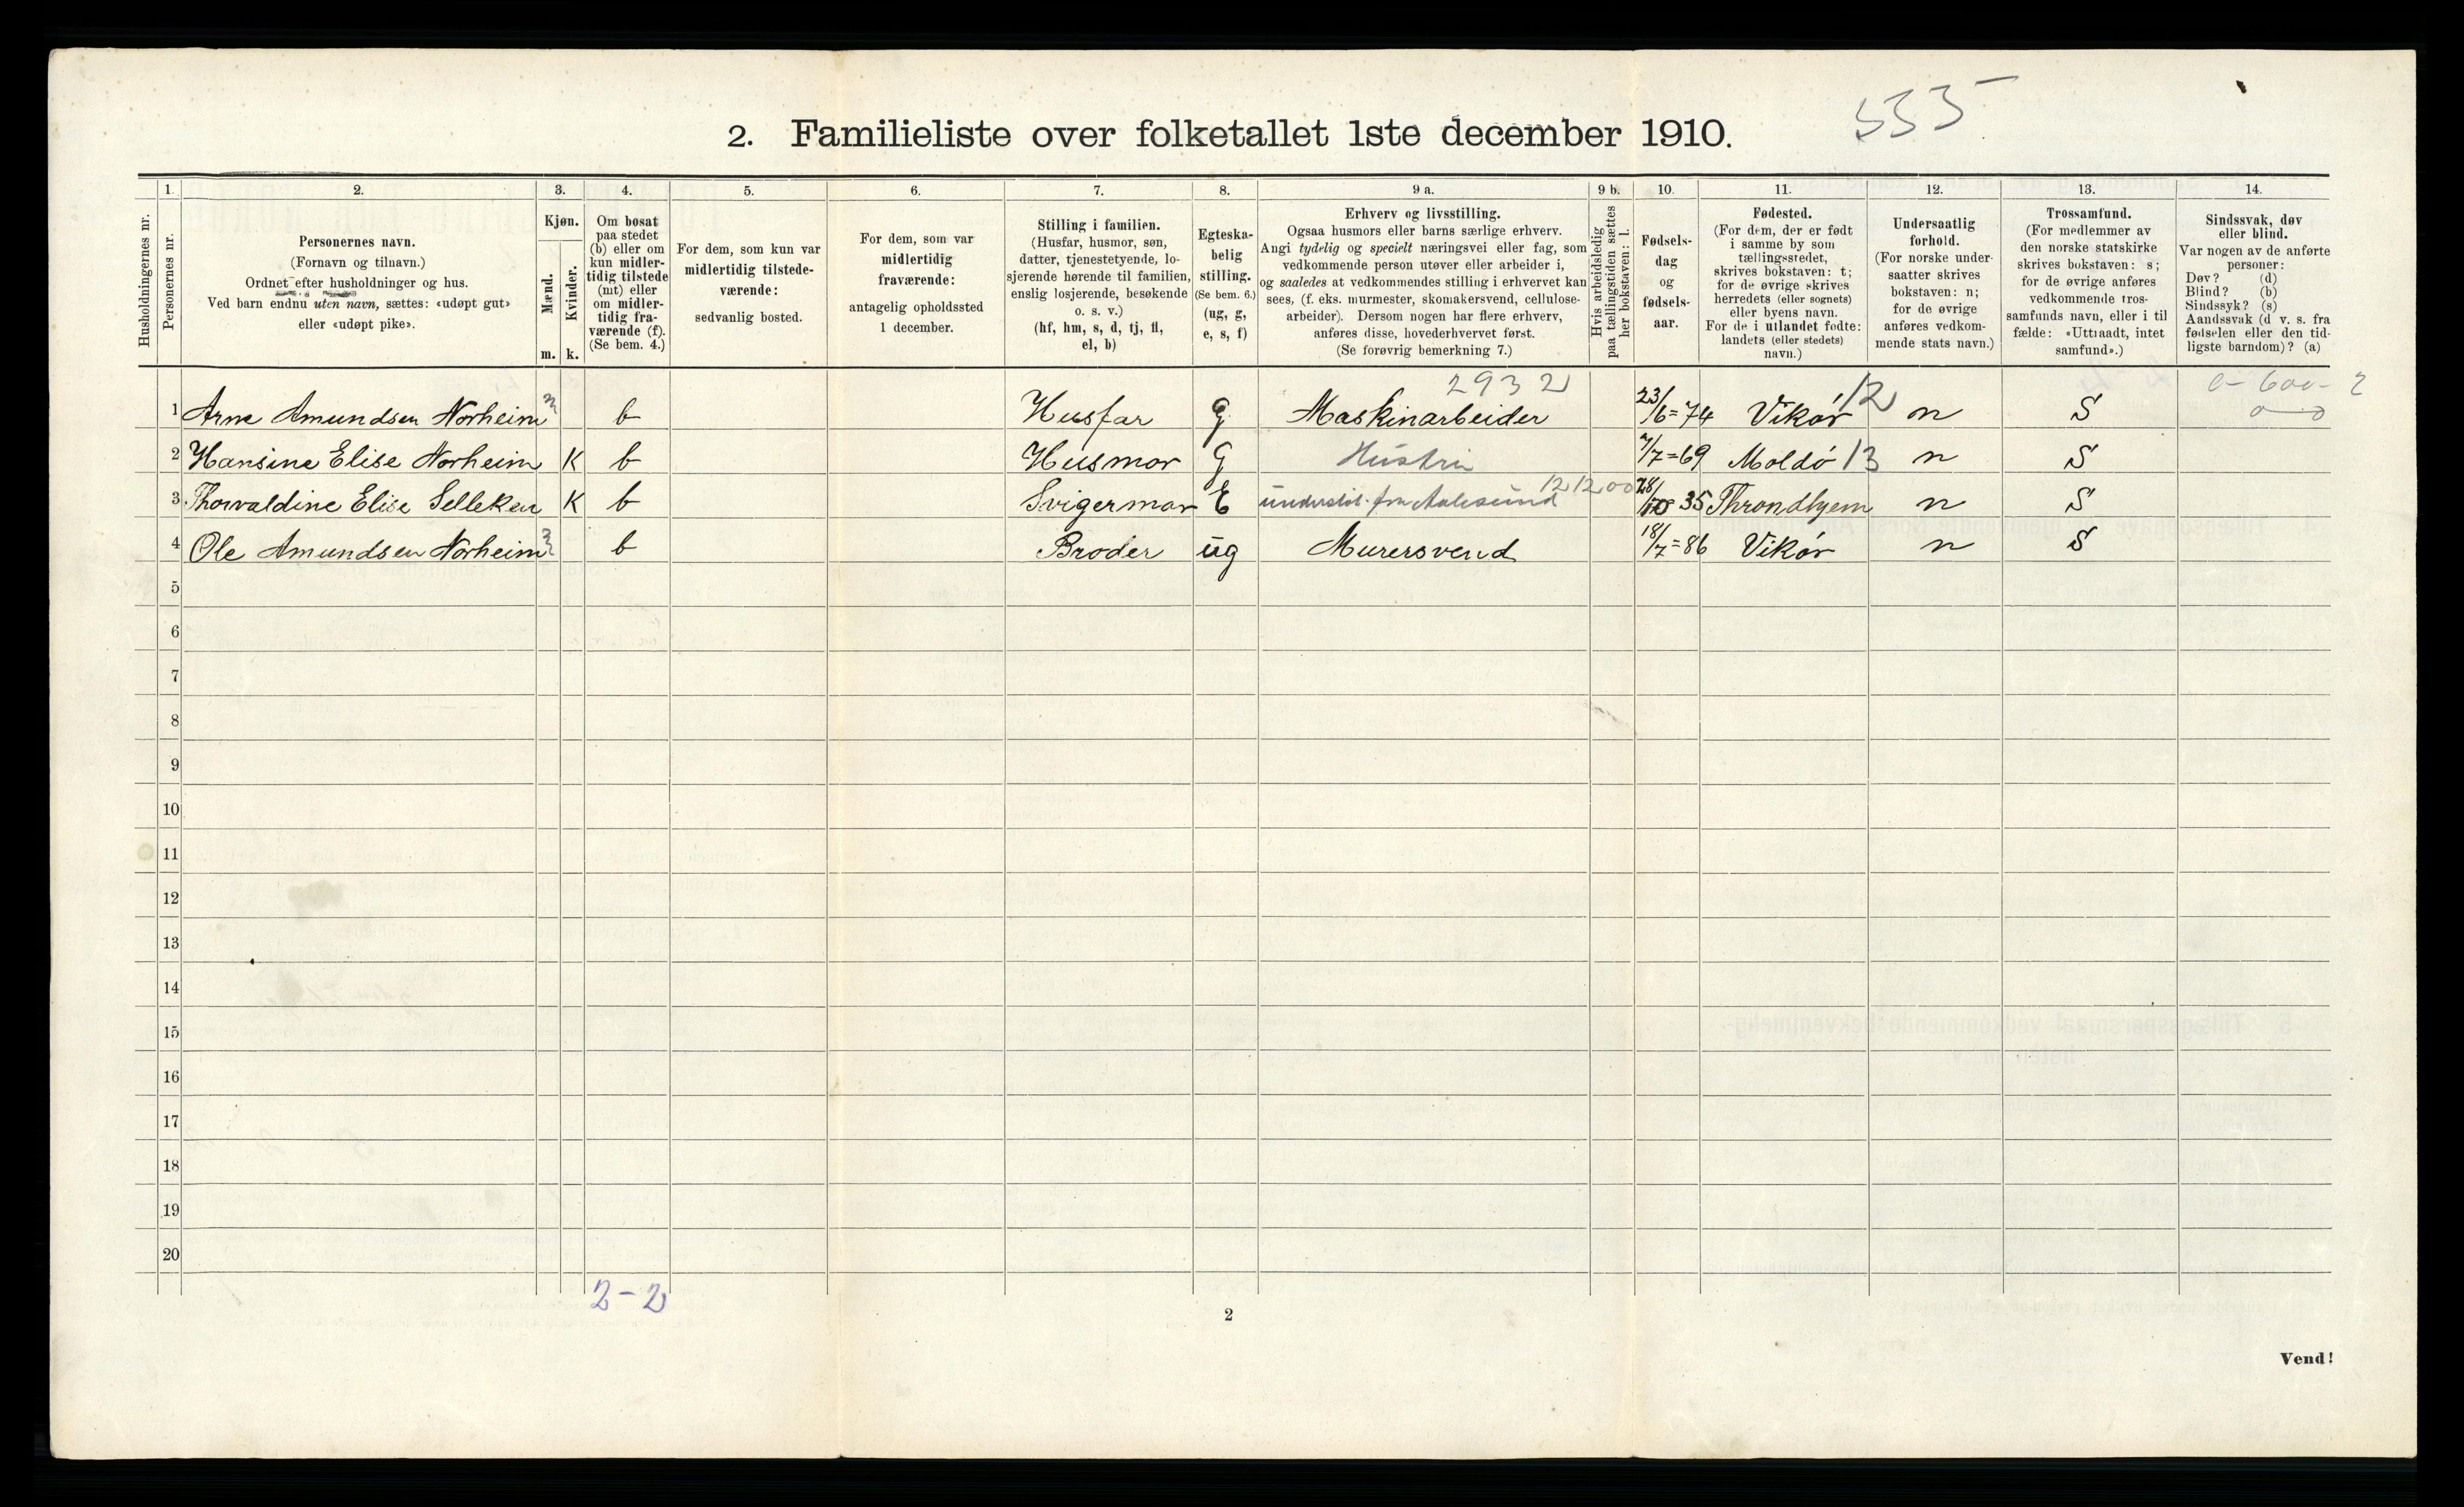 2. Familieliste over folketallet 1ste december 1910.
535
Husholdningernes nr.
1. Personernes nr.
2. Personernes navn.
(Fornavn og tilnavn.)
Ordnet efter husholdninger og hus.
Ved barn endnu uten navn, sættes: «udøpt gut»
eller «udøpt pike».
3. Kjøn.
Mænd. m.
Kvinder. k.
4. Om bosat
paa stedet
(b) eller om
kun midler-
tidig tilstede
(mt) eller
om midler-
tidig fra-
værende (f).
(Se bem. 4.)
5. For dem, som kun var
midlertidig tilstede-
værende:
sedvanlig bosted.
6. For dem, som var
midlertidig
fraværende:
antagelig opholdssted
1 december.
7. Stilling i familien.
(Husfar, husmor, søn,
datter, tjenestetyende, lo-
sjerende hørende til familien,
enslig losjerende, besøkende
o. s. v.)
(hf, hm, s, d, tj, fl,
el, b)
8. Egteska-
belig
stilling.
(Se bem. 6.)
(ug, g,
e, s, f)
9 a. Erhverv og livsstilling.
Ogsaa husmors eller barns særlige erhverv.
Angi tydelig og specielt næringsvei eller fag, som
vedkommende person utøver eller arbeider i,
og saaledes at vedkommendes stilling i erhvervet kan
sees, (f. eks. murmester, skomakersvend, cellulose-
arbeider). Dersom nogen har flere erhverv,
anføres disse, hovederhvervet først.
(Se forøvrig bemerkning 7.)
9 b. Hvis arbeidsledig
paa tællingstiden sættes
her bokstaven: l.
10. Fødsels-
dag
og
fødsels-
aar.
11. Fødested.
(For dem, der er født
i samme by som
tællingsstedet,
skrives bokstaven: t;
for de øvrige skrives
herredets (eller sognets)
eller byens navn.
For de i utlandet fødte:
landets (eller stedets)
navn.)
12. Undersaatlig
forhold.
(For norske under-
saatter skrives
bokstaven: n;
for de øvrige
anføres vedkom-
mende stats navn.)
13. Trossamfund.
(For medlemmer av
den norske statskirke
skrives bokstaven: s;
for de øvrige anføres
vedkommende tros-
samfunds navn, eller i til
fælde: «Uttraadt, intet
samfund».)
14. Sindssvak, døv
eller blind.
Var nogen av de anførte
personer:
Døv? (d)
Blind? (b)
Sindssyk? (s)
Aandssvak (d. v. s. fra
fødselen eller den tid-
ligste barndom)? (a)
2932 0-600-2
1 Arne Amundsen Norheim m b Husfar G Maskinarbeider 23/6=74 Vikør 12 n S
2 Hansine Elise Norheim K b Husmor G Hustru 7/7=69 Moldö 13 n S
121200
3 Thorvaldine Elise Selleken K b Svigermor E understöt. fra Aalesund 28/10 35 Throndhjem n S
4 Ole Amundsen Norheim m b Broder ug Murersvend 18/7=86 Vikør n S
5
6
7
8
9
10
11
12
13
14
15
16
17
18
19
20
2-2
2
Vend!